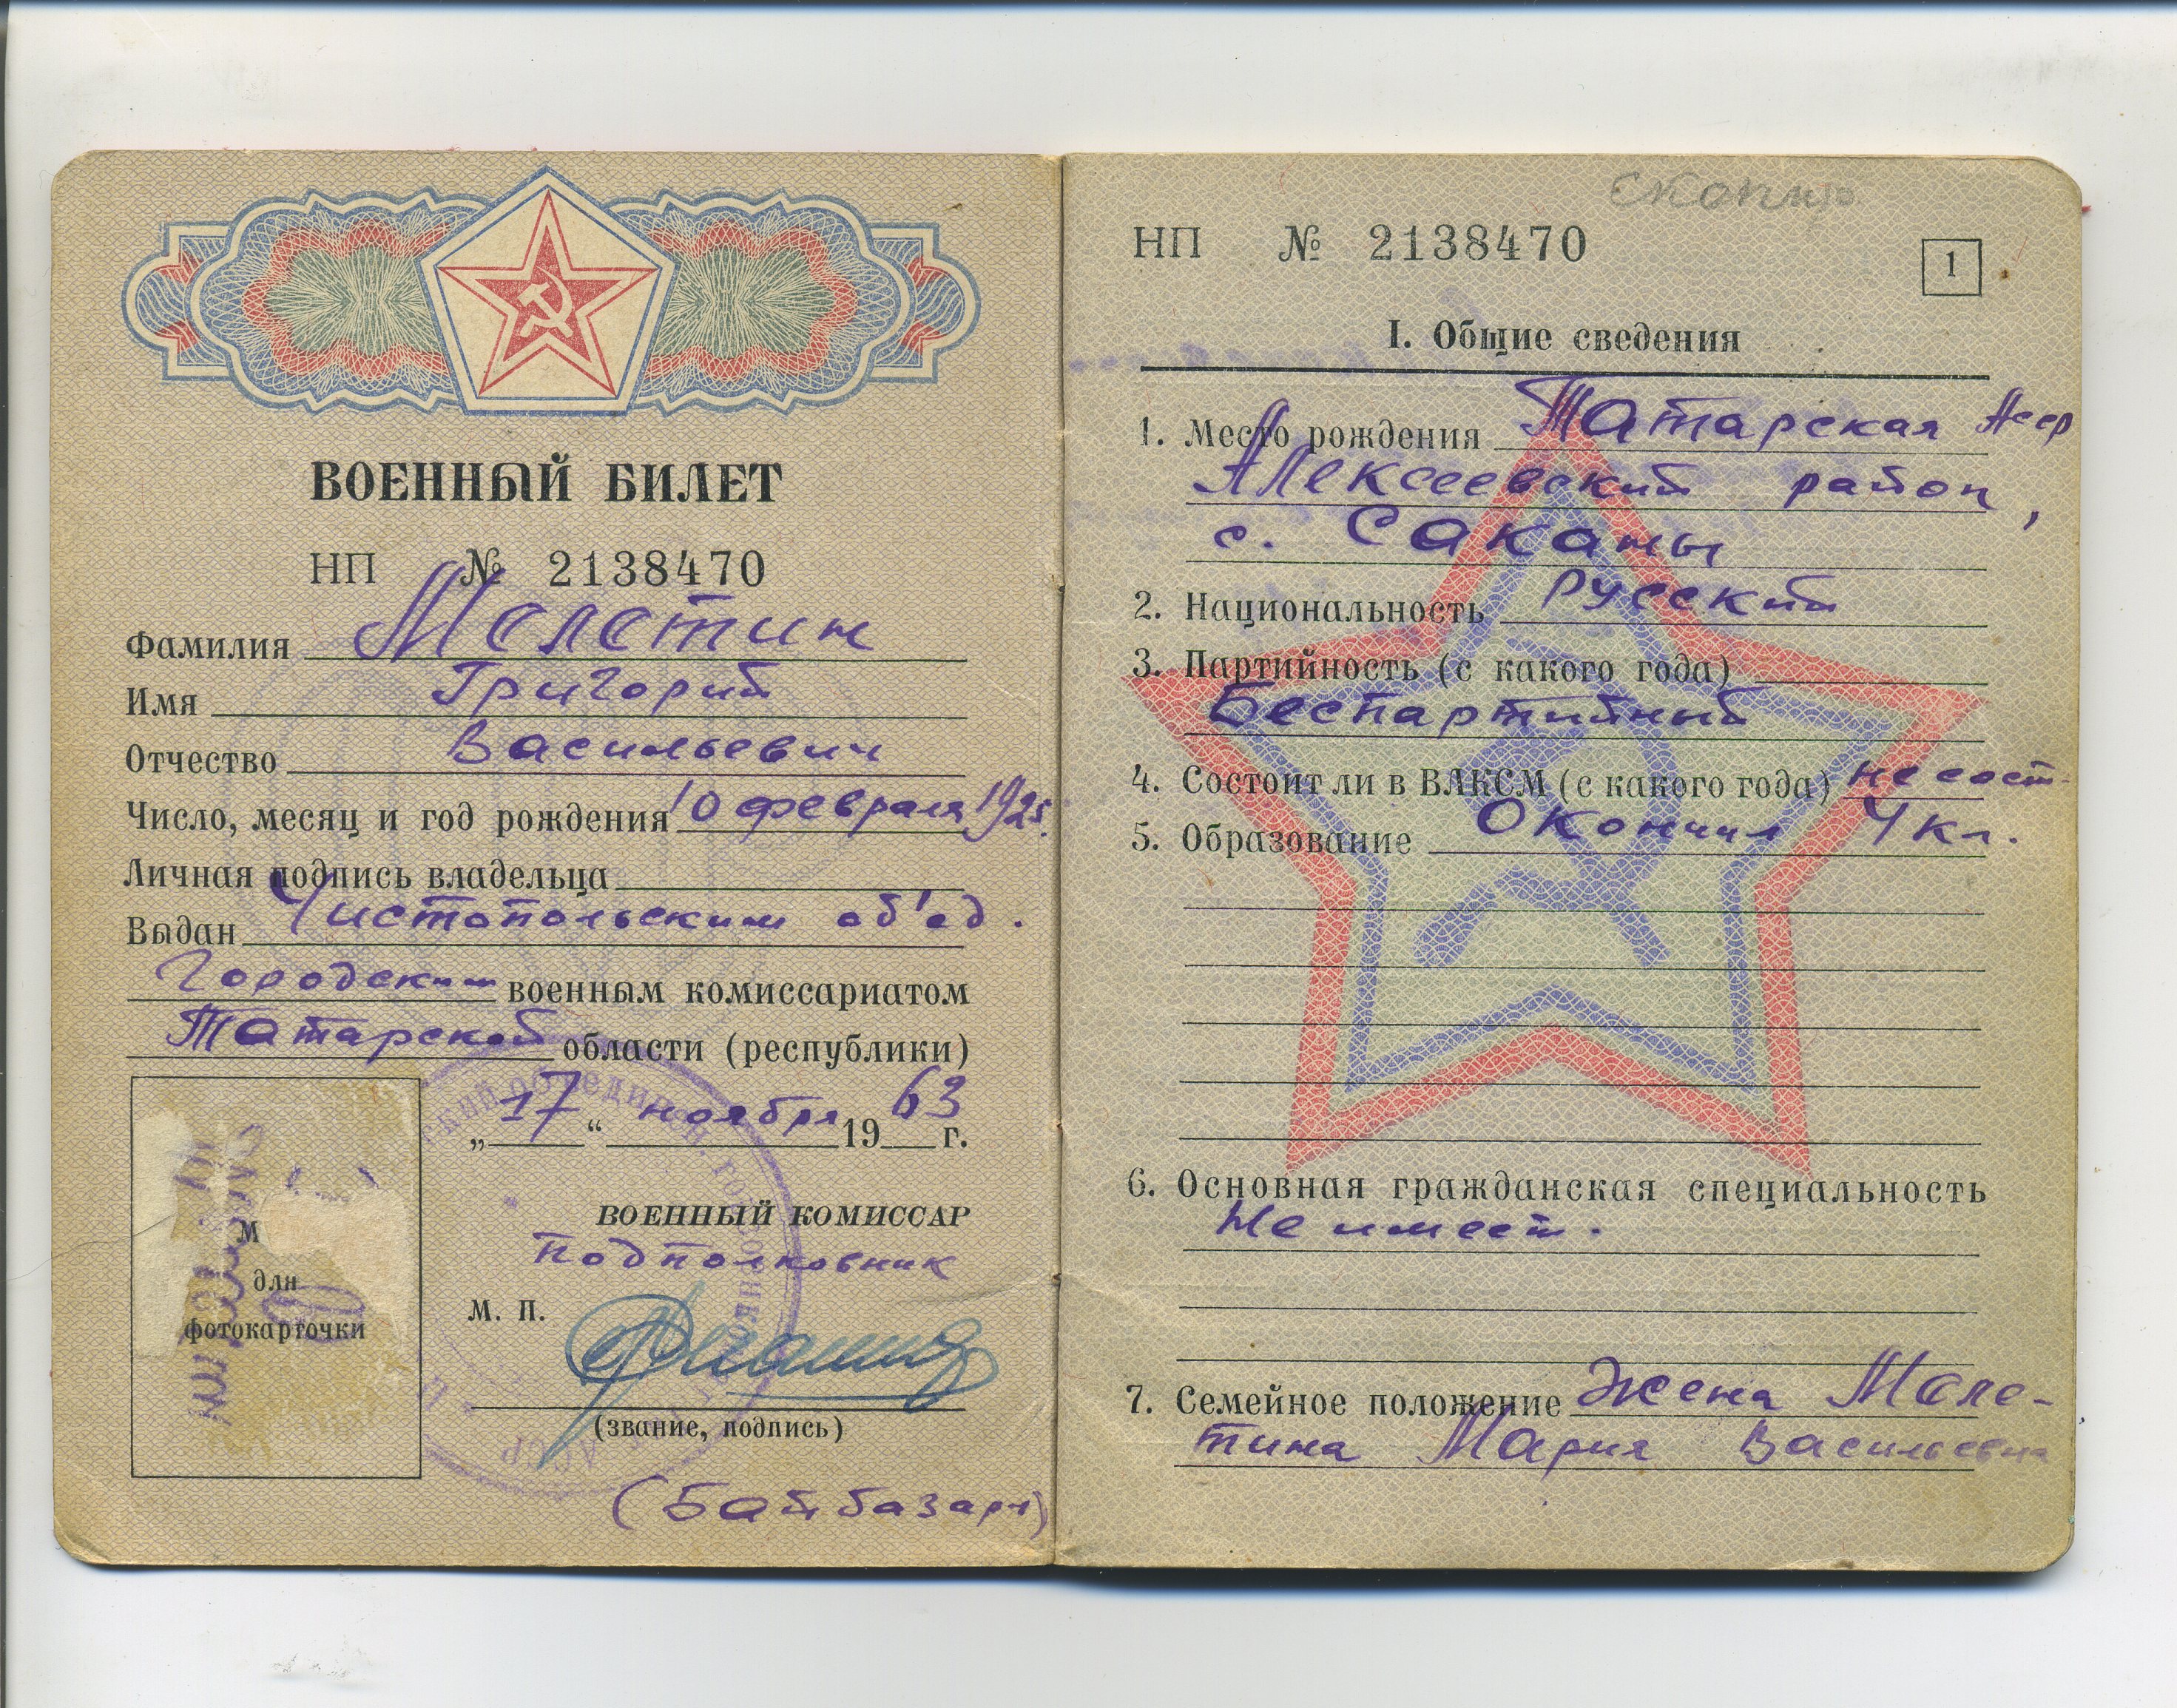 ВОЕННЫЙ БИЛЕТ
НП № 2138470
Фамилия Малатин
Имя Григорий
Отчество Васильевич
Число, месяц и год рождения 10 февраля 1925.
Личная подпись владельца
Выдан Чистопольским об'ед.
Городским военным комиссариатом
Татарской области (республики)
„17“ ноября 1963 г.
ВОЕННЫЙ КОМИССАР
подполковник
М. П.
(звание, подпись)
М
для
фотокарточки
НП № 2138470
1
I. Общие сведения
1. Место рождения Татарская Асср
Алексеевский район,
с. Саканы
2. Национальность Русский
3. Партийность (с какого года)
Беспартийный
4. Состоит ли в ВЛКСМ (с какого года) не сост.
5. Образование Окончил 4 кл.
6. Основная гражданская специальность
Не имеет.
7. Семейное положение Жена Мала-
тина Мария Васильевна